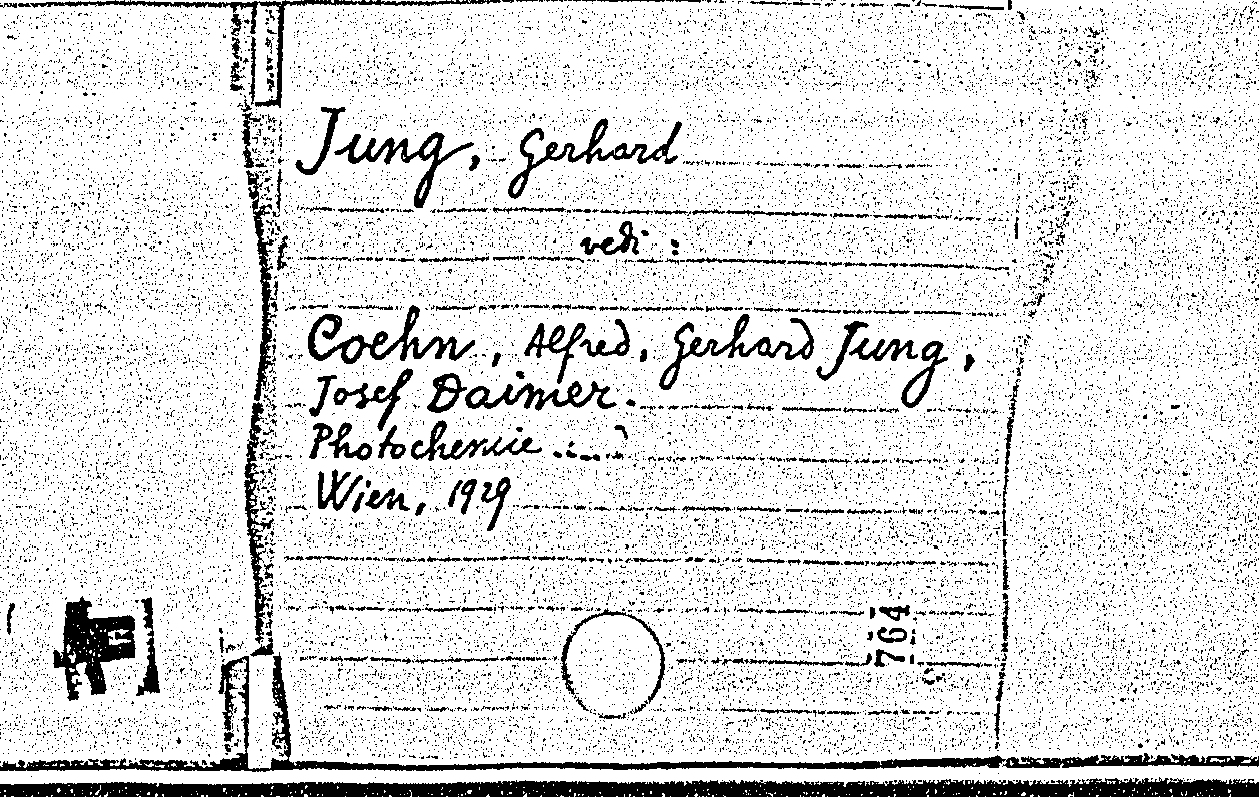 Jung, Gerhard
vedi :
Coehn, Alfred, Gerhard Jung,
Josef Daimer.
Photochemie ....
Wien, 1929
764